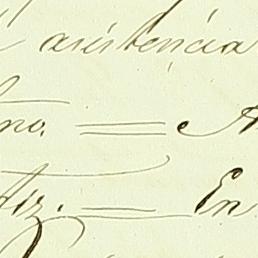 asistencia
no. = A
tiz. = En